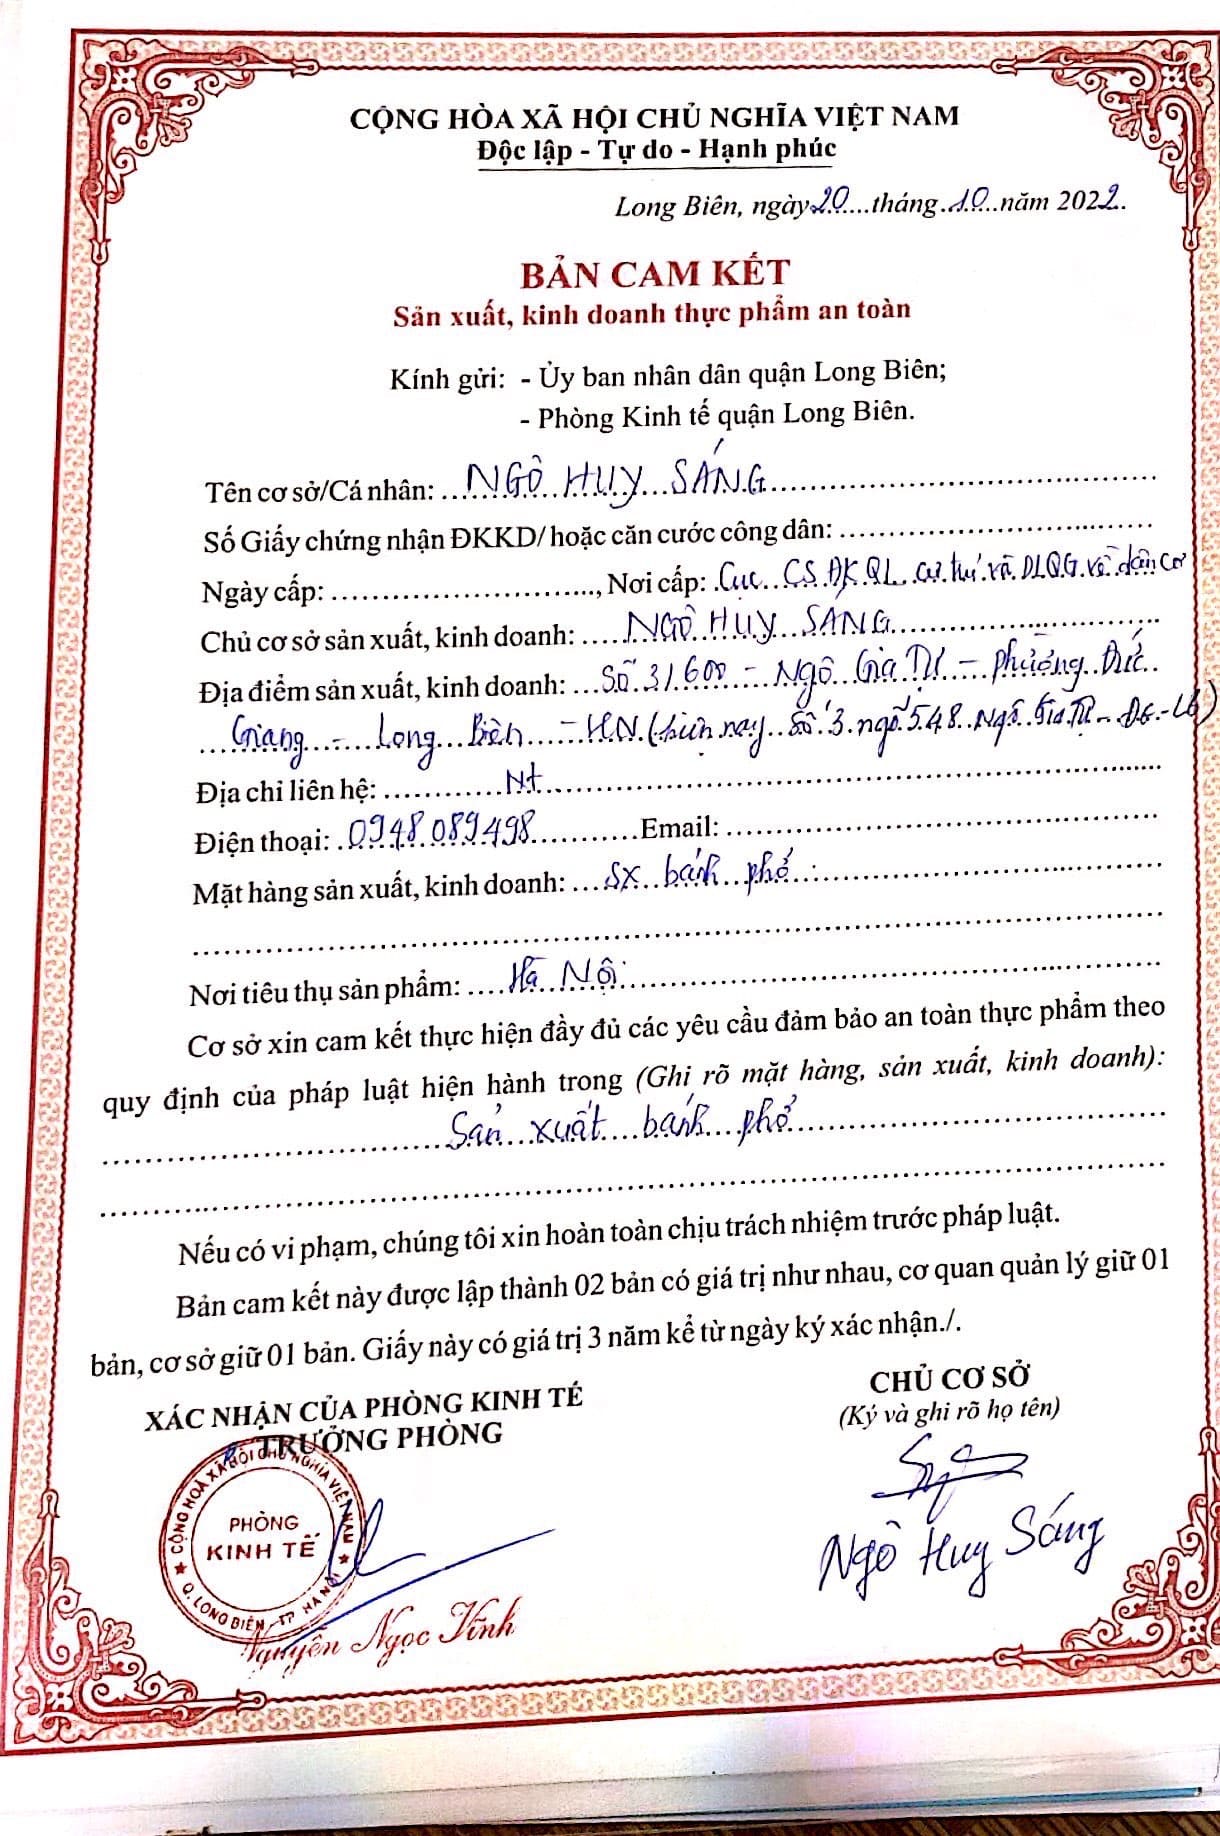 CỘNG HÒA XÃ HỘI CHỦ NGHĨA VIỆT NAM
Độc lập - Tự do - Hạnh phúc
Long Biên, ngày 20 tháng 10 năm 2022.
BẢN CAM KẾT
Sản xuất, kinh doanh thực phẩm an toàn
Kính gửi: - Ủy ban nhân dân quận Long Biên;
- Phòng Kinh tế quận Long Biên.
Tên cơ sở/Cá nhân: NGÔ HUY SÁNG
Số Giấy chứng nhận ĐKKD/ hoặc căn cước công dân:
Ngày cấp: ..., Nơi cấp: Cục CS ĐKQL cư trú và DLQG về dân cư
Chủ cơ sở sản xuất, kinh doanh: NGÔ HUY SÁNG
Địa điểm sản xuất, kinh doanh: Số 31600 - Ngô Gia Tự - phường Đức
Giang - Long Biên - HN (hiện nay số 3 ngõ 548 Ngô Gia Tự - ĐG - LB)
Địa chỉ liên hệ: Nt
Điện thoại: 0948 089 498 Email:
Mặt hàng sản xuất, kinh doanh: SX bánh phở
Nơi tiêu thụ sản phẩm: Hà Nội
Cơ sở xin cam kết thực hiện đầy đủ các yêu cầu đảm bảo an toàn thực phẩm theo
quy định của pháp luật hiện hành trong (Ghi rõ mặt hàng, sản xuất, kinh doanh):
Sản xuất bánh phở
Nếu có vi phạm, chúng tôi xin hoàn toàn chịu trách nhiệm trước pháp luật.
Bản cam kết này được lập thành 02 bản có giá trị như nhau, cơ quan quản lý giữ 01
bản, cơ sở giữ 01 bản. Giấy này có giá trị 3 năm kể từ ngày ký xác nhận./.
XÁC NHẬN CỦA PHÒNG KINH TẾ
TRƯỞNG PHÒNG
CỘNG HOÀ XÃ HỘI CHỦ NGHĨA VIỆT NAM
PHÒNG
KINH TẾ
Q. LONG BIÊN - TP HÀ NỘI
Nguyễn Ngọc Vĩnh
CHỦ CƠ SỞ
(Ký và ghi rõ họ tên)
Ngô Huy Sáng